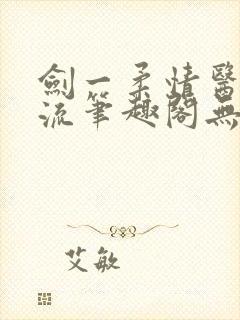 劍一柔情醫
流筆趣閣無
艾敏